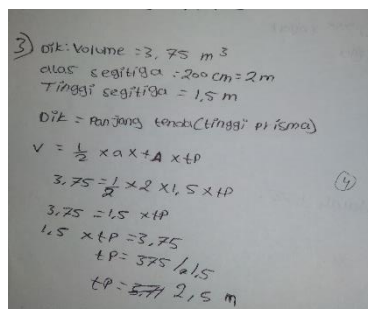 3) Dik: Volume = 3,75 m³
alas segitiga = 200 cm = 2m
Tinggi segitiga = 1,5 m
Dik = Panjang tenda (tinggi prisma)
V = 1/2 x a x tA x tP
3,75 = 1/2 x 2 x 1,5 x tP
(4)
3,75 = 1,5 x tP
1,5 x tP = 3,75
tP = 375 / 1,5
tP = 2,5 m